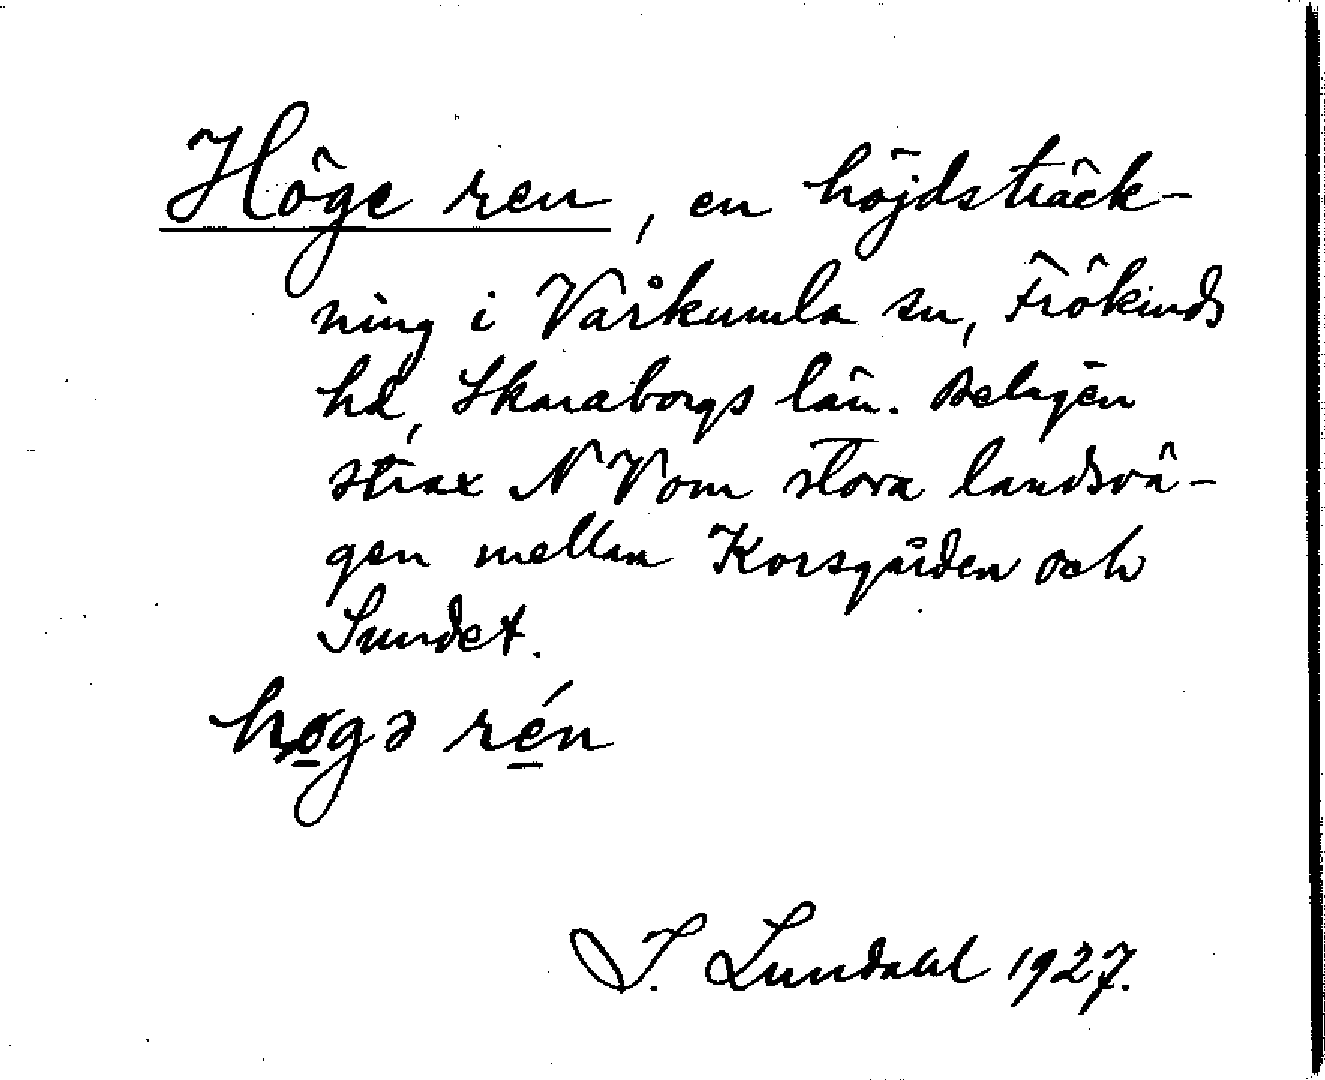 Höge ren, en höjdsträck-
ning i Vårkumla sn, Frökinds
hd, Skaraborgs län. Belägen
strax NV om stora landsvä-
gen mellan Korsgården och
Sundet.
høgə rén
I. Lundahl 1927.